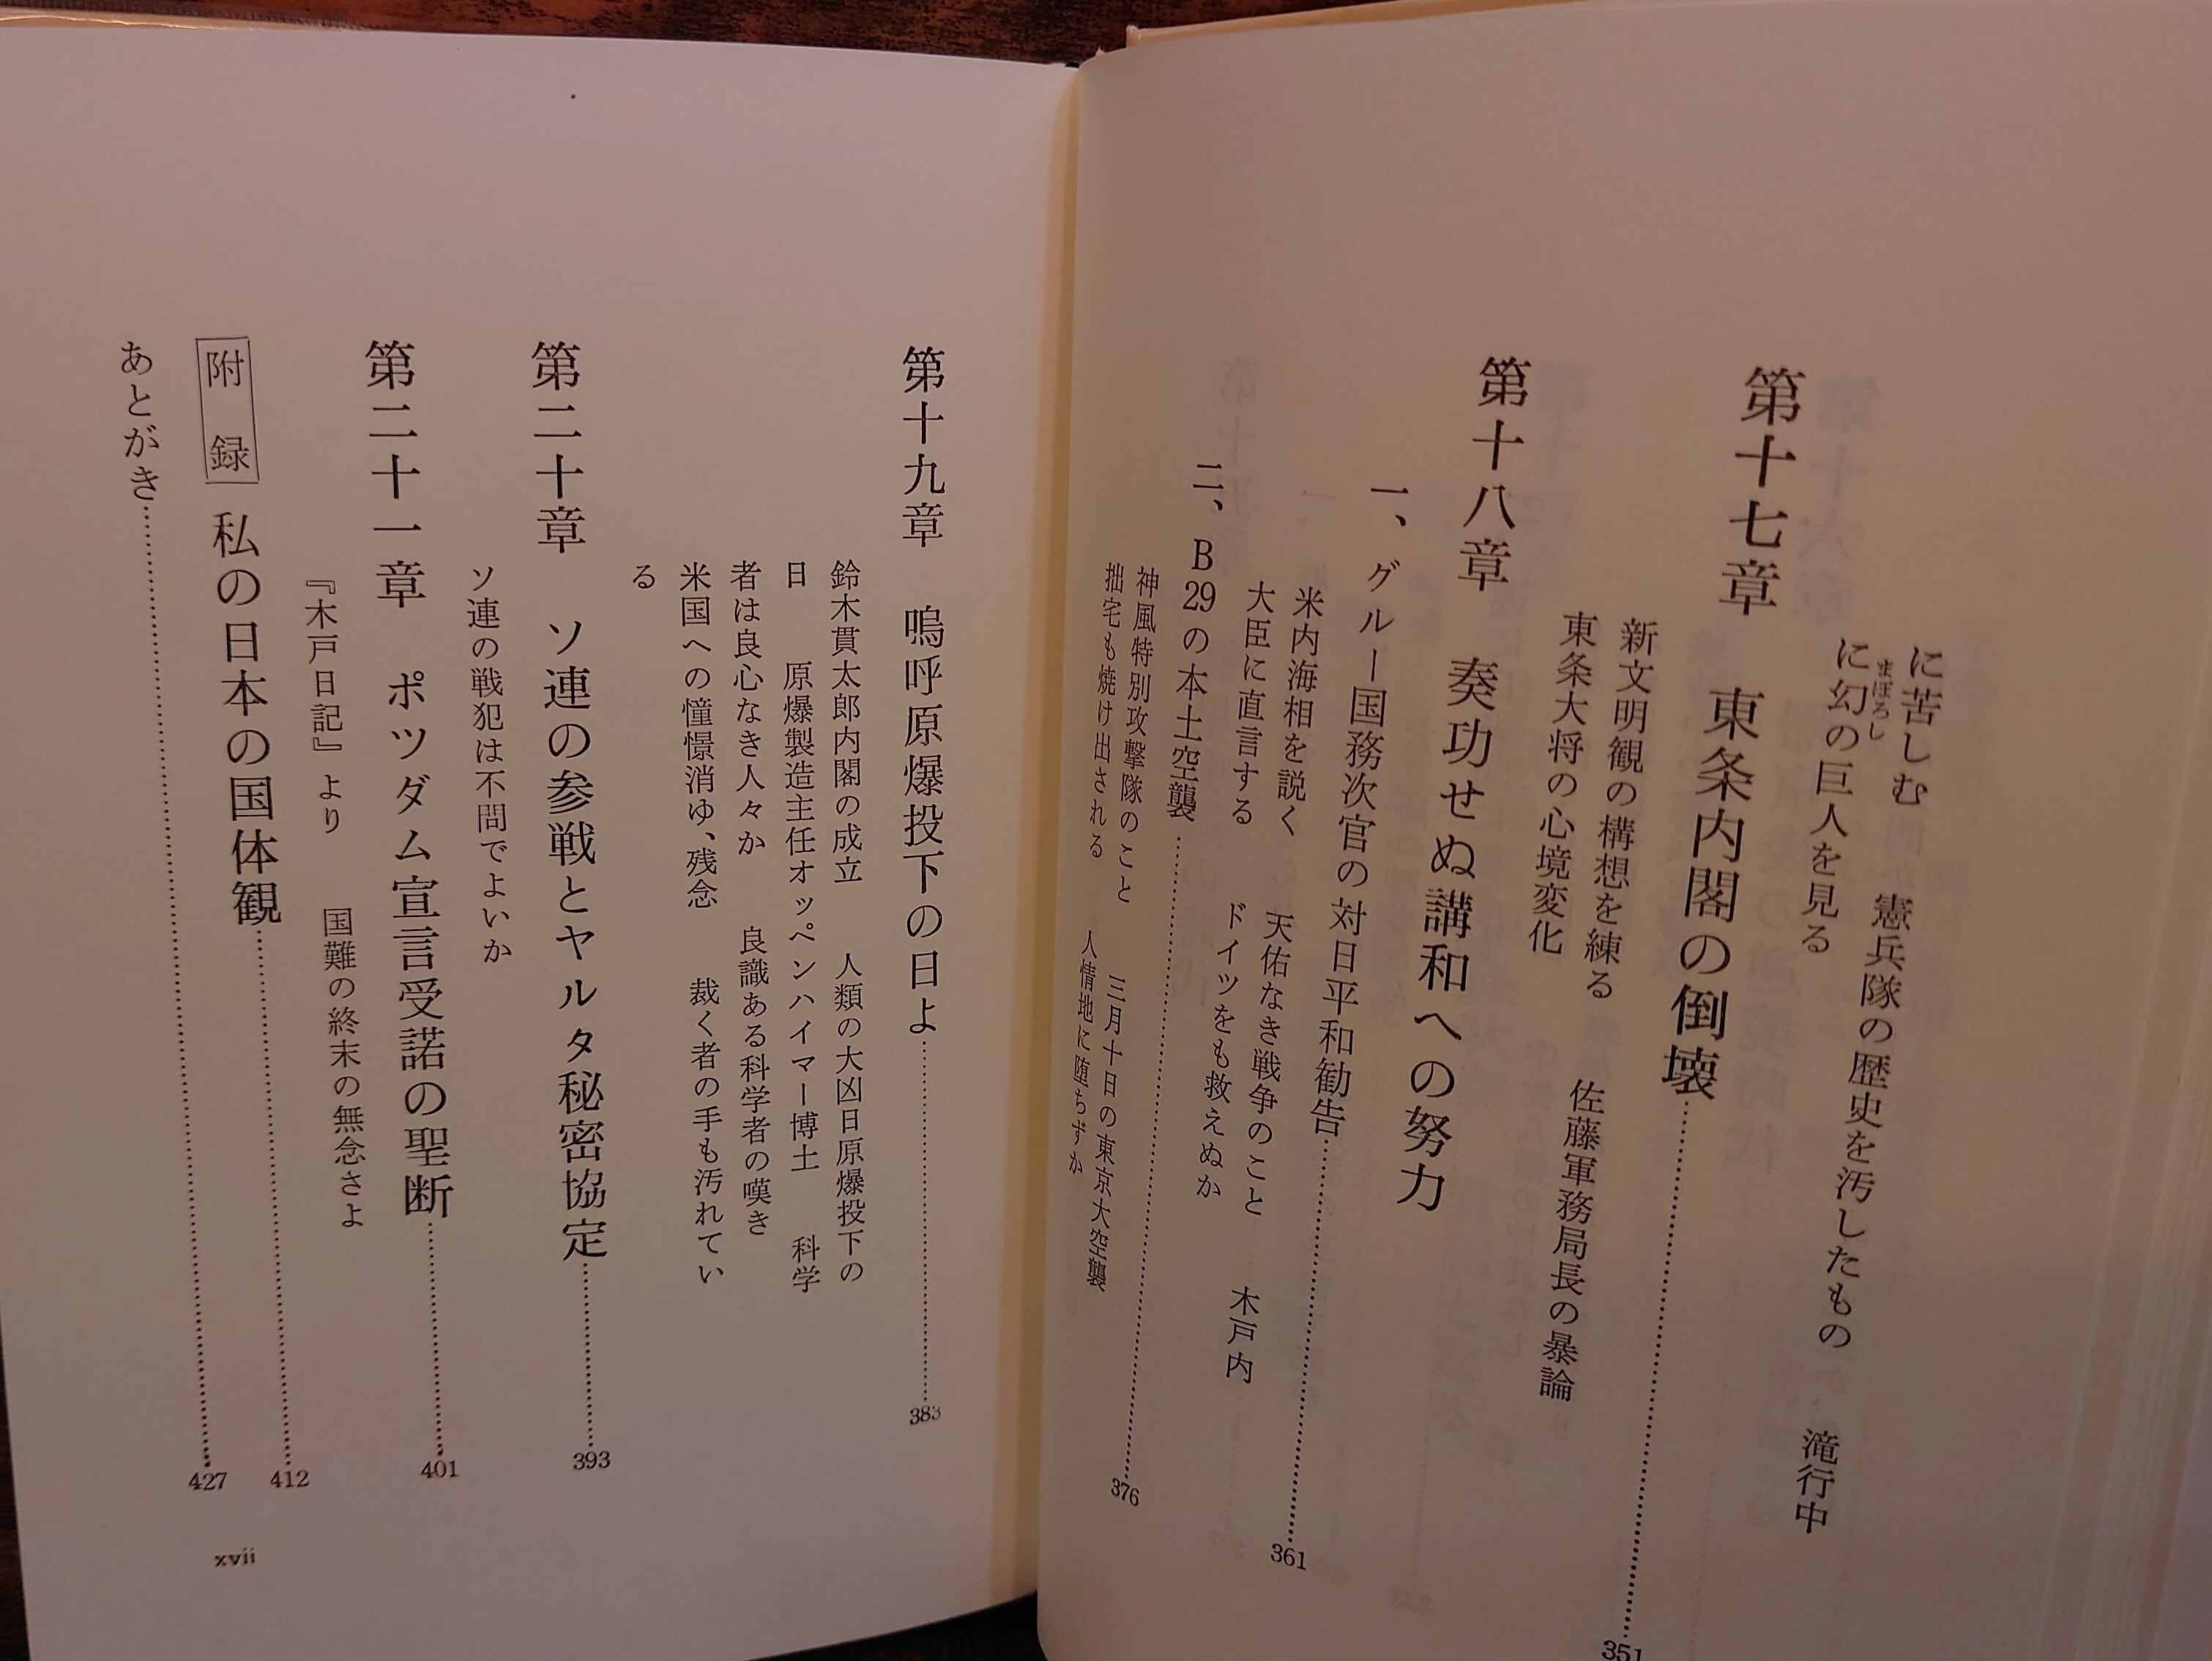 に苦しむ　憲兵隊の歴史を汚したもの　滝行中
に幻の巨人を見る
まぼろし
第十七章　東条内閣の倒壊……351
新文明観の構想を練る　佐藤軍務局長の暴論
東条大将の心境変化
第十八章　奏功せぬ講和への努力
一、グルー国務次官の対日平和勧告……361
米内海相を説く　天佑なき戦争のこと　木戸内
大臣に直言する　ドイツをも救えぬか
二、B29の本土空襲……376
神風特別攻撃隊のこと　三月十日の東京大空襲
拙宅も焼け出される　人情地に堕ちずか
第十九章　嗚呼原爆投下の日よ……383
鈴木貫太郎内閣の成立　人類の大凶日原爆投下の
日　原爆製造主任オッペンハイマー博士　科学
者は良心なき人々か　良識ある科学者の嘆き
米国への憧憬消ゆ、残念　裁く者の手も汚れてい
る
第二十章　ソ連の参戦とヤルタ秘密協定……393
ソ連の戦犯は不問でよいか
第二十一章　ポツダム宣言受諾の聖断……401
『木戸日記』より　国難の終末の無念さよ
附録　私の日本の国体観……412
あとがき……427
xvii